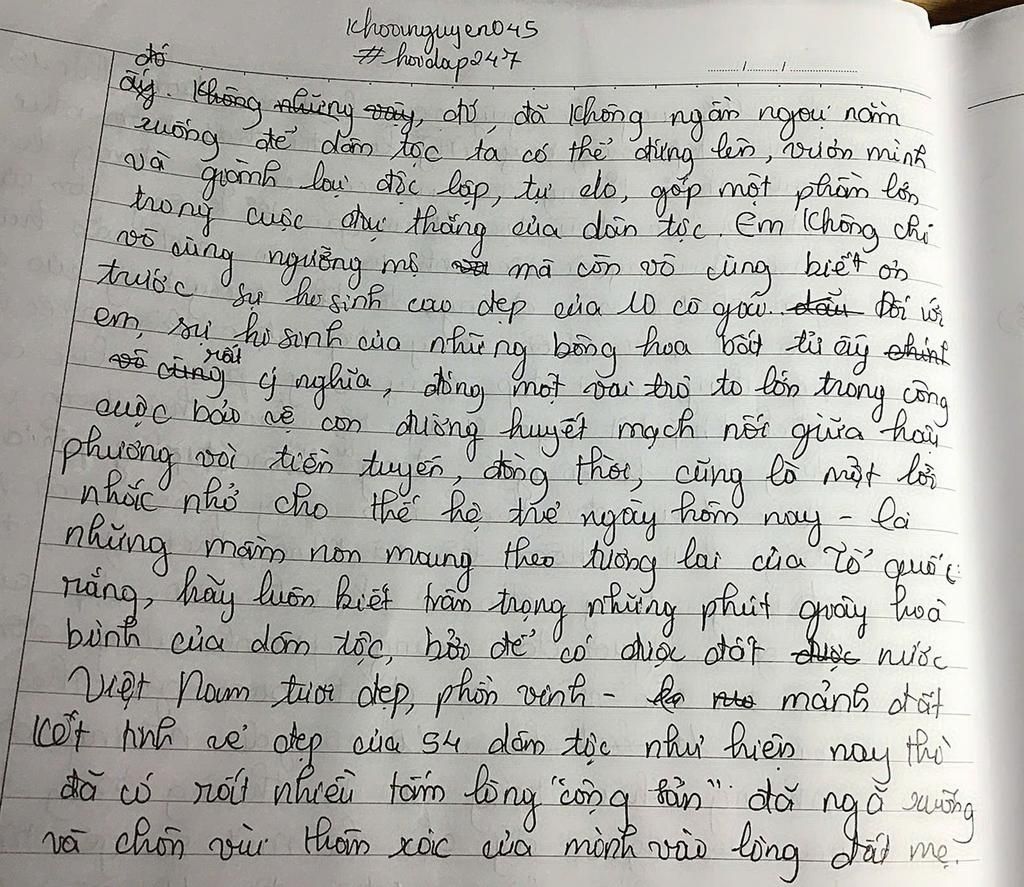 Khoanguyen045
#hoidap247
đó
ấy. Không những vậy, đó, đã không ngần ngại nằm
xuống để dân tộc ta có thể đứng lên, vươn mình
và giành lại độc lập, tự do, góp một phần lớn
trong cuộc đại thắng của dân tộc. Em không chỉ
vô cùng ngưỡng mộ mà còn vô cùng biết ơn
trước sự hi sinh cao đẹp của 10 cô gái. Đối với
em, sự hi sinh của những bông hoa bất tử ấy chính
vô cùng rất ý nghĩa, đóng một vai trò to lớn trong công
cuộc bảo vệ con đường huyết mạch nối giữa hậu
phương với tiền tuyến, đồng thời, cũng là một lời
nhắc nhở cho thế hệ trẻ ngày hôm nay - là
những mầm non mang theo tương lai của Tổ quốc
rằng, hãy luôn biết trân trọng những phút giây hoà
bình của dân tộc, bởi để có được đất được nước
Việt Nam tươi đẹp, phồn vinh - mảnh đất
kết tinh vẻ đẹp của 54 dân tộc như hiện nay thì
đã có rất nhiều tấm lòng "cộng sản" đã ngã xuống
và chôn vùi thân xác của mình vào lòng đất mẹ.